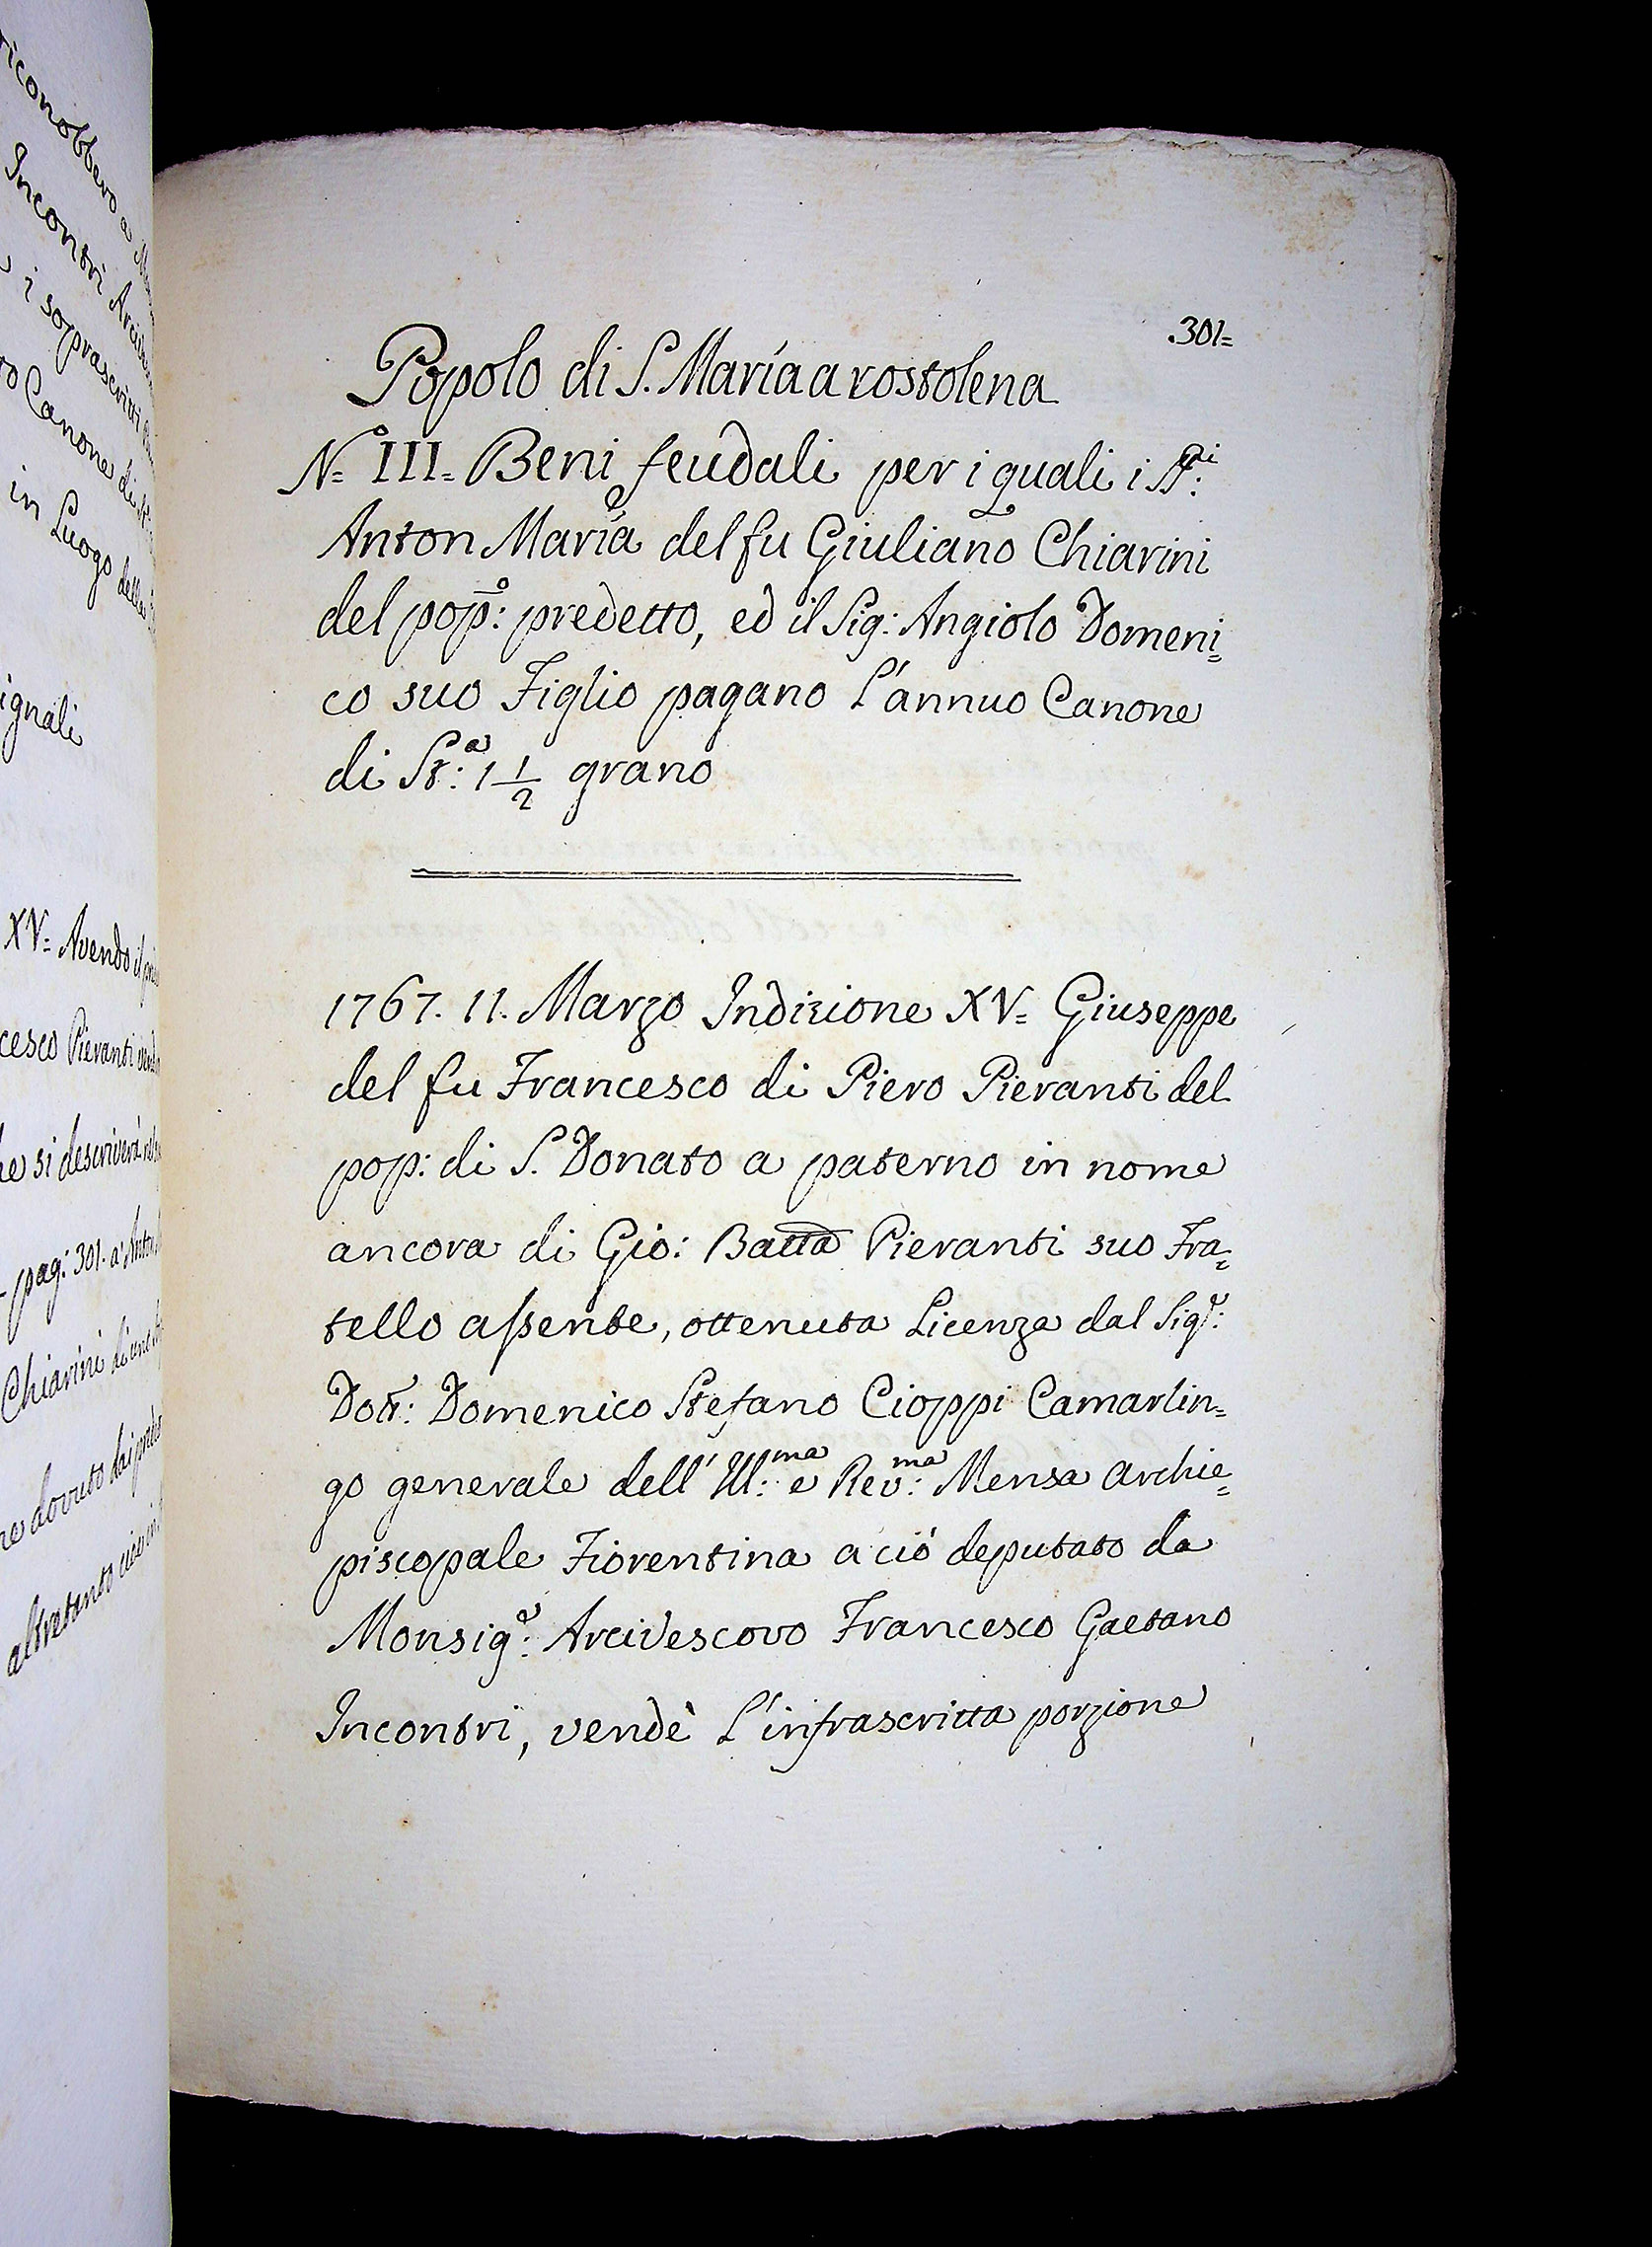 riconobbero a
Incontri
i soprascritti
to Canone di
in Luogo delle
ignali
XV= Avendo il
cesco Pieranti
he si descriverà
pag: 301. a
Chiarini di
ne dovuto dai
altretanto
.301=
Popolo di S. Maria a rostolena
N=º III= Beni feudali per i quali i SS:ri
Anton Maria del fu Giuliano Chiarini
del pop:º predetto, ed il Sig: Angiolo Domeni=
co suo Figlio pagano L'annuo Canone
di St:a 1 1/2 grano
1767. 11. Marzo Indizione XV= Giuseppe
del fu Francesco di Piero Pieranti del
pop: di S. Donato a paterno in nome
ancora di Gio: Batta Pieranti suo Fra=
tello assente, ottenuta Licenza dal Sig:r
Dott:r Domenico Stefano Cioppi Camarlin=
go generale dell' Ill:ma e Rev:ma Mensa Archie=
piscopale Fiorentina a ciò deputato da
Monsig:r Arcivescovo Francesco Gaetano
Incontri, vendè L'infrascritta porzione